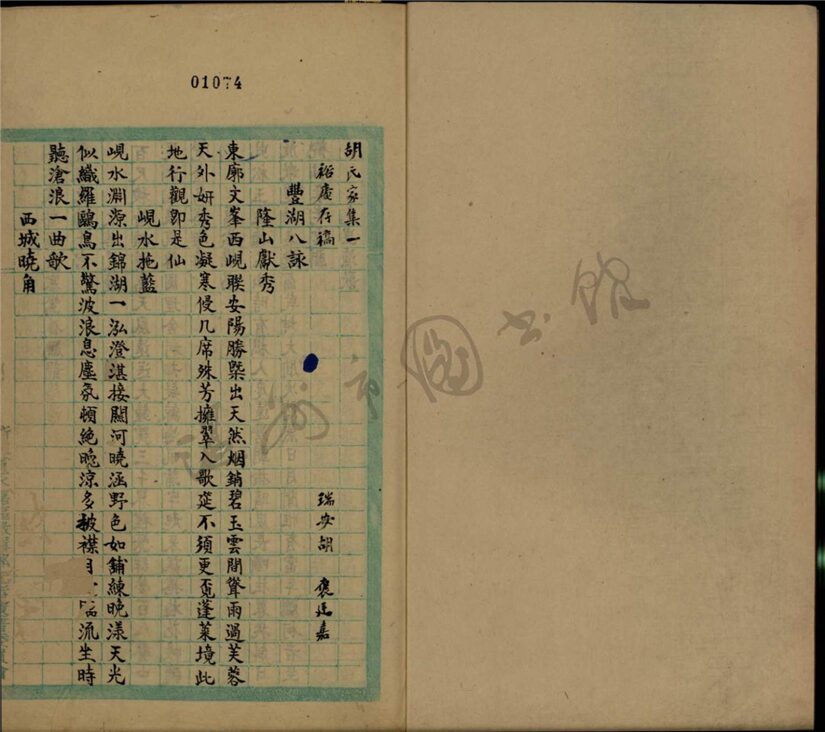 01074
胡氏家集一
裕庵存稿 瑞安胡 襃廷嘉
豐湖八詠
隆山獻秀
東廓文峯西峴聯安陽勝槩出天然烟銷碧玉雲間聳雨過芙蓉
天外妍秀色凝寒侵几席殊芳擁翠入歌筵不須更覓蓬萊境此
地行觀即是仙
峴水拖藍
峴水淵源出錦湖一泓澄湛接關河曉涵野色如鋪練晚漾天光
似織羅鷗鳥不驚波浪息塵氛頓絕晚涼多披襟流坐時
聽滄浪一曲歌
西城曉角
温州市图书馆